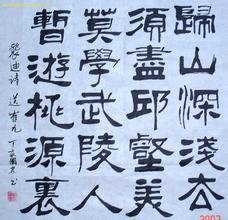 歸山深淺去
須盡邱壑美
莫學武陵人
暫遊桃源裏
裴迪诗 送崔九